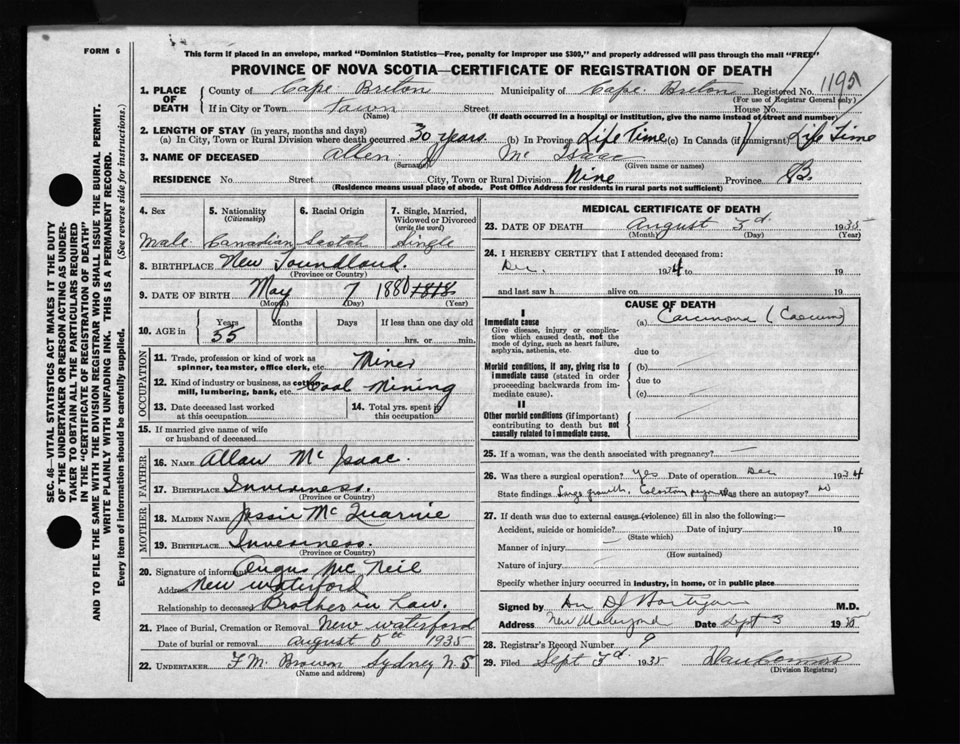 FORM 6
This form if placed in an envelope, marked "Dominion Statistics—Free, penalty for improper use $300," and properly addressed will pass through the mail "FREE"
PROVINCE OF NOVA SCOTIA—CERTIFICATE OF REGISTRATION OF DEATH
1195
1. PLACE OF DEATH
County of Cape Breton Municipality of Cape Breton Registered No.
(For use of Registrar General only)
If in City or Town Town Street House No.
(Name) (If death occurred in a hospital or institution, give the name instead of street and number)
2. LENGTH OF STAY (in years, months and days)
(a) In City, Town or Rural Division where death occurred 30 years (b) In Province Life Time (c) In Canada (if immigrant) Life Time
3. NAME OF DECEASED Allen Mc Isaac
(Surname) (Given name or names)
RESIDENCE No. Street City, Town or Rural Division Nine Province B.
(Residence means usual place of abode. Post Office Address for residents in rural parts not sufficient)
SEC. 46—VITAL STATISTICS ACT MAKES IT THE DUTY
OF THE UNDERTAKER OR PERSON ACTING AS UNDER-
TAKER TO OBTAIN ALL THE PARTICULARS REQUIRED
IN THE "CERTIFICATE OF REGISTRATION OF DEATH"
AND TO FILE THE SAME WITH THE DIVISION REGISTRAR WHO SHALL ISSUE THE BURIAL PERMIT.
WRITE PLAINLY WITH UNFADING INK. THIS IS A PERMANENT RECORD.
Every item of information should be carefully supplied. (See reverse side for instructions.)
4. Sex 5. Nationality (Citizenship) 6. Racial Origin 7. Single, Married, Widowed or Divorced (write the word)
Male Canadian Scotch Single
8. BIRTHPLACE New Foundland
(Province or Country)
9. DATE OF BIRTH May 7 1880 1818
(Month) (Day) (Year)
10. AGE in Years Months Days If less than one day old
55 hrs. or min.
OCCUPATION
11. Trade, profession or kind of work as spinner, teamster, office clerk, etc. Miner
12. Kind of industry or business, as cotton mill, lumbering, bank, etc. Coal Mining
13. Date deceased last worked at this occupation 14. Total yrs. spent in this occupation
15. If married give name of wife or husband of deceased
FATHER
16. NAME Allan Mc Isaac
17. BIRTHPLACE Inverness
(Province or Country)
MOTHER
18. MAIDEN NAME Jessie McQuarrie
19. BIRTHPLACE Inverness
(Province or Country)
20. Signature of informant Angus McNeil
Address New Waterford
Relationship to deceased Brother in Law.
21. Place of Burial, Cremation or Removal New Waterford
Date of burial or removal August 5th 1935
22. UNDERTAKER F.M. Brown Sydney N.S
(Name and address)
MEDICAL CERTIFICATE OF DEATH
23. DATE OF DEATH August 3d 1935
(Month) (Day) (Year)
24. I HEREBY CERTIFY that I attended deceased from:
Dec. 1934 to 19
and last saw h alive on 19
CAUSE OF DEATH
I
Immediate cause (a) Carcinoma (Caecum)
Give disease, injury or complication which caused death, not the mode of dying, such as heart failure, asphyxia, asthenia, etc.
due to
Morbid conditions, if any, giving rise to immediate cause (stated in order proceeding backwards from immediate cause). (b)
due to
(c)
II
Other morbid conditions (if important) contributing to death but not causally related to immediate cause.
25. If a woman, was the death associated with pregnancy? —
26. Was there a surgical operation? yes Date of operation Dec 1934
State findings Large growth. Colostomy Was there an autopsy? no
27. If death was due to external causes (violence) fill in also the following:—
Accident, suicide or homicide? Date of injury 19
(State which)
Manner of injury
(How sustained)
Nature of injury
Specify whether injury occurred in industry, in home, or in public place
Signed by M.D.
Address New Waterford Date Sept 3 1935
28. Registrar's Record Number 9
29. Filed Sept 3d 1935
(Division Registrar)